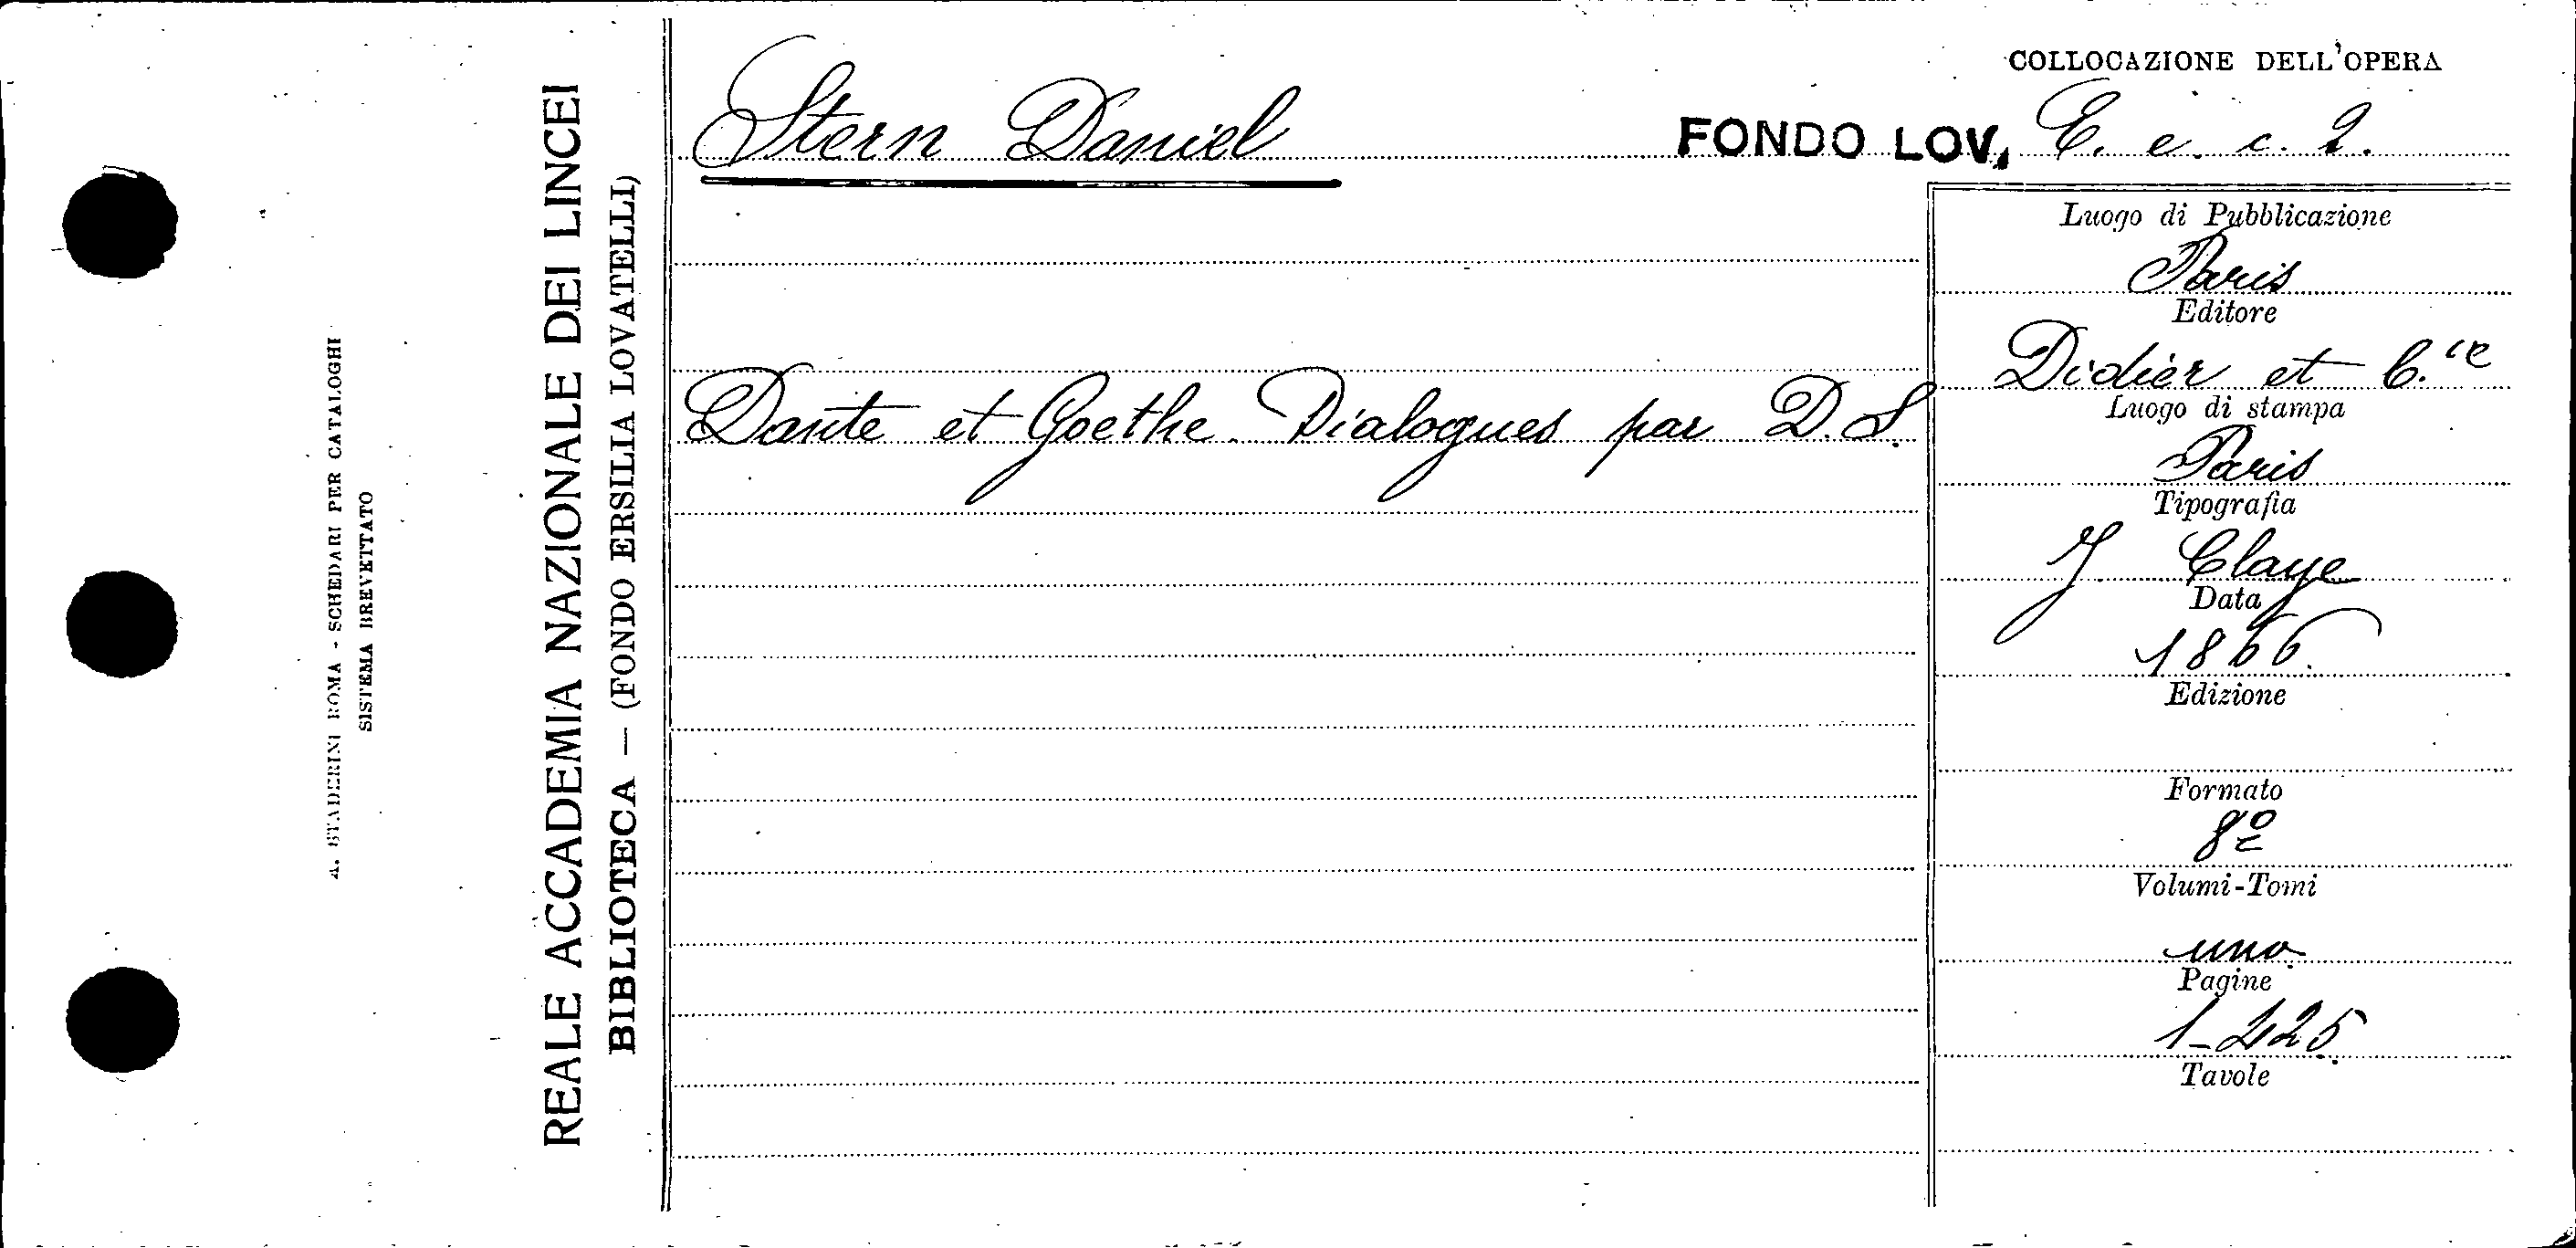 A. STADERINI ROMA - SCHEDARI PER CATALOGHI
SISTEMA BREVETTATO
REALE ACCADEMIA NAZIONALE DEI LINCEI
BIBLIOTECA — (FONDO ERSILIA LOVATELLI)
Stern Daniel
Dante et Goethe. Dialogues par D. S.
COLLOCAZIONE DELL'OPERA
FONDO LOV. E. e. c. 2.
Luogo di Pubblicazione
Paris
Editore
Didier et C.ie
Luogo di stampa
Paris
Tipografia
J Claye
Data
1866.
Edizione
Formato
8º
Volumi-Tomi
uno.
Pagine
1-425.
Tavole